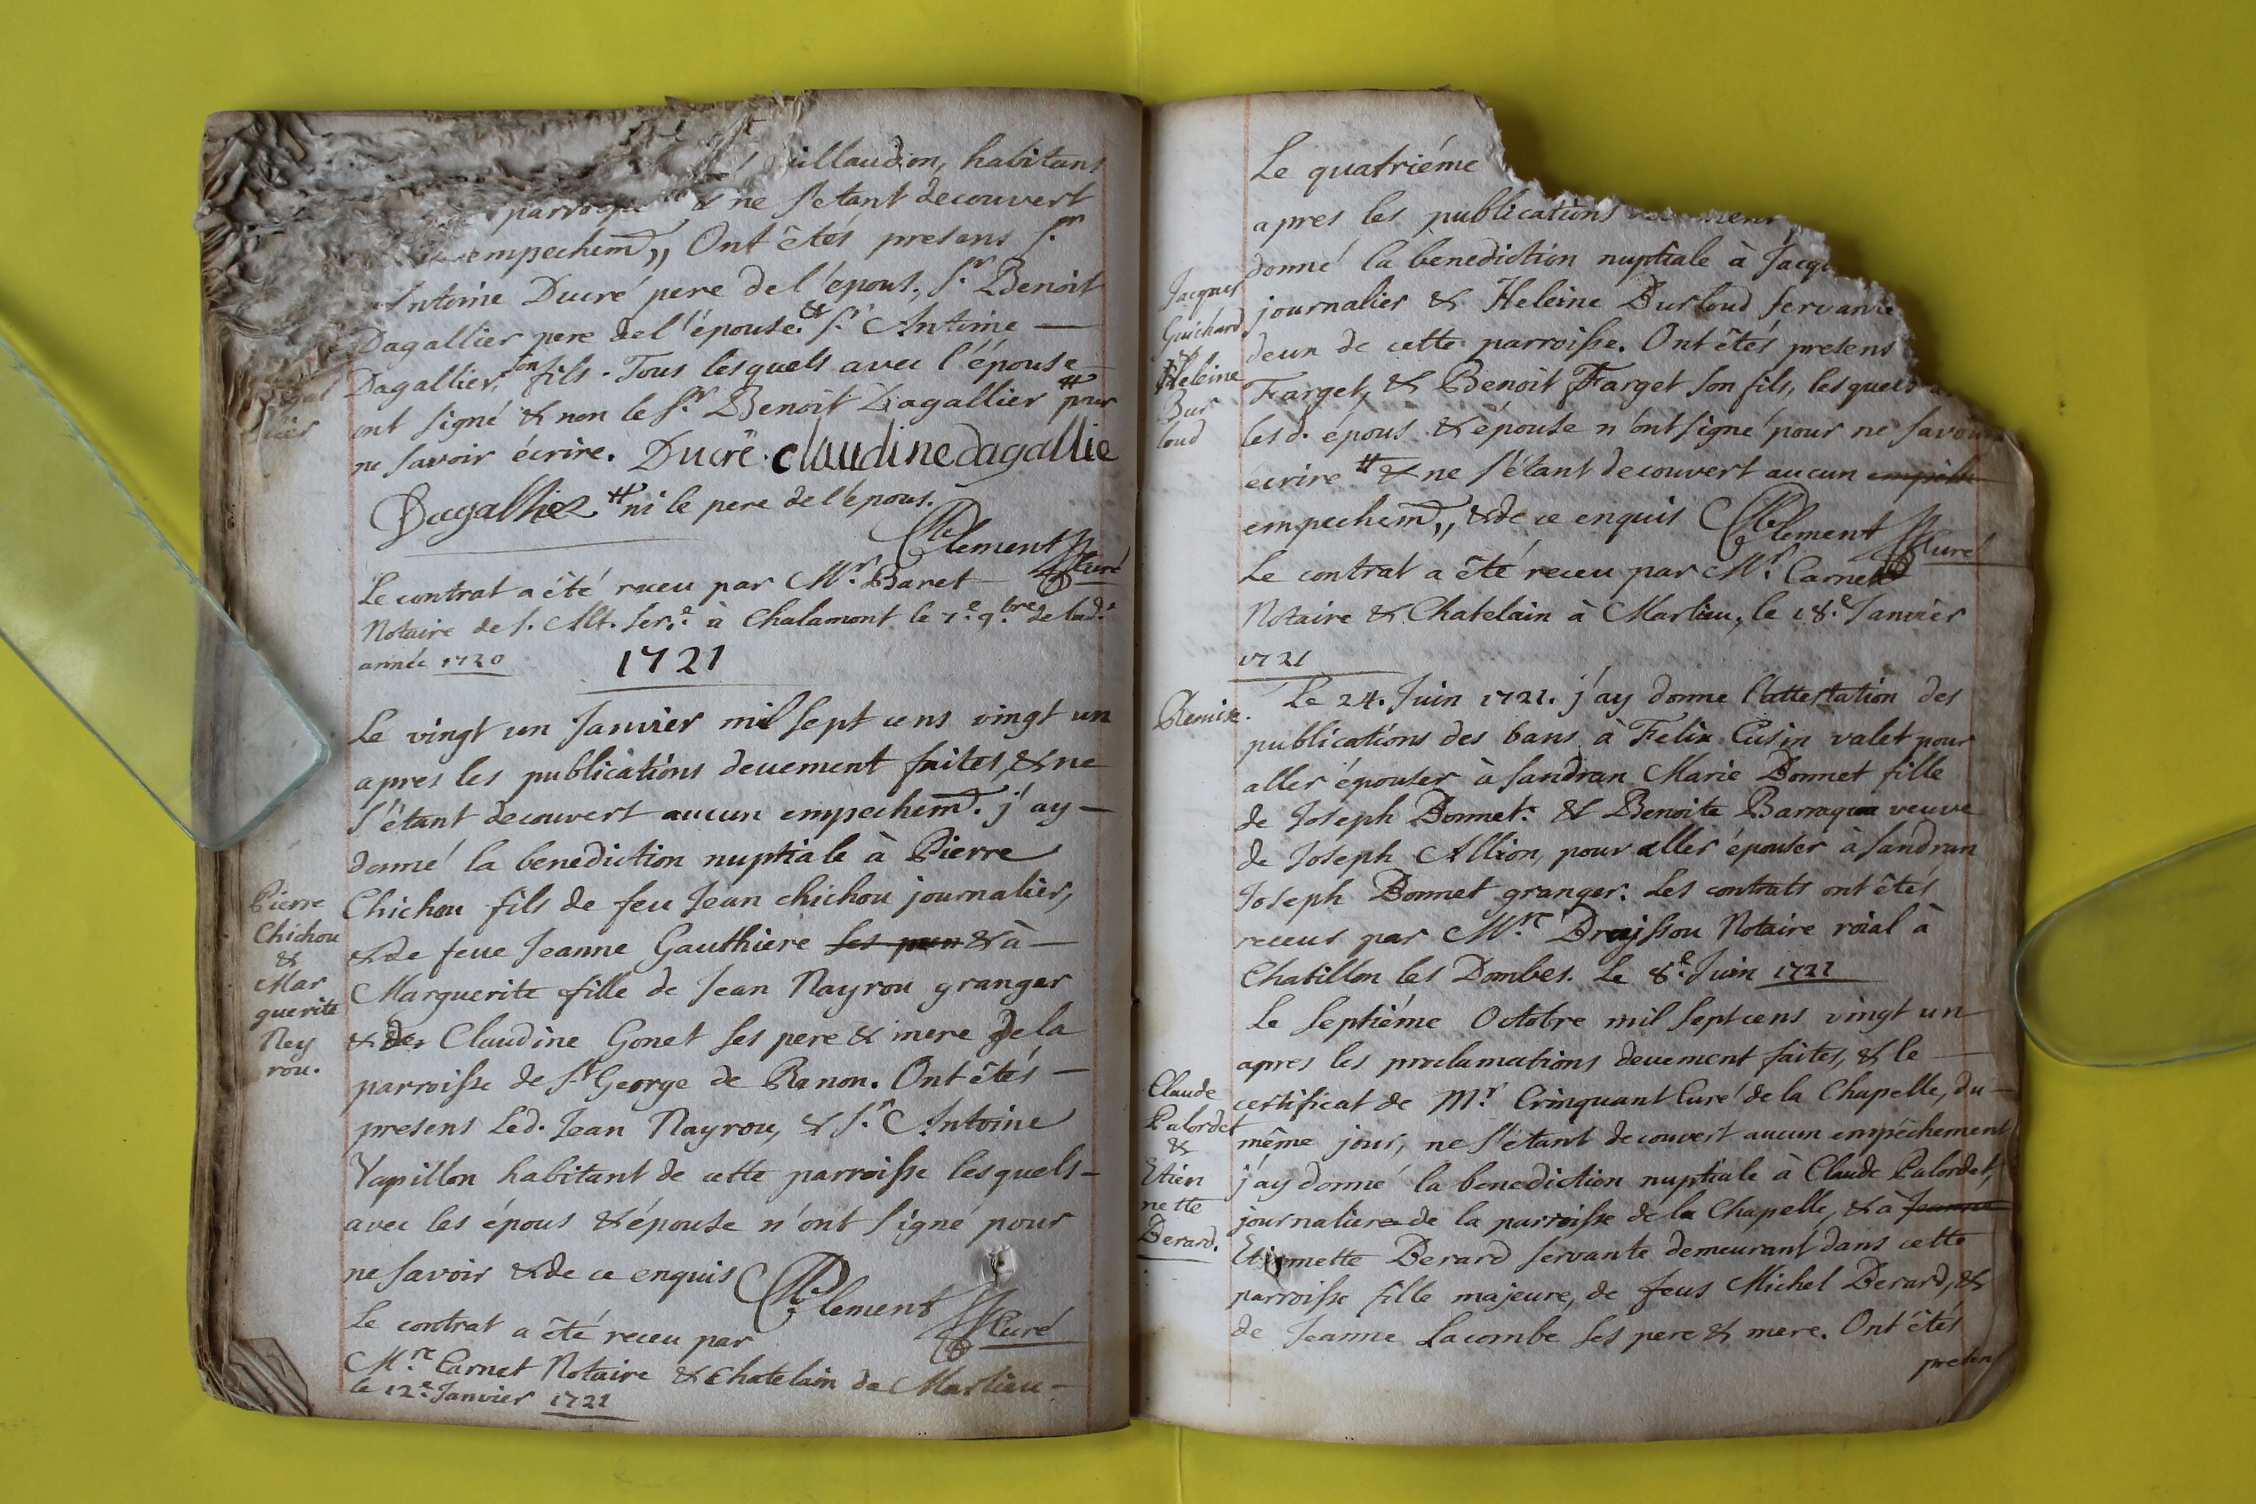 illaudon, habitans
& ne s'etant decouvert
empechem.t,, Ont êtés presens S.r
Antoine Ducré pere de l'épous, S.r Benoit
Dagallier pere de l'épouse. & S.r Antoine —
Dagallier, son fils. Tous lesquels avec l'épouse
ont signé & non le S.r Benoit Dagallier # pour
ne savoir écrire. Ducré. claudine dagallie
Dagallier # ni le pere de l'épous.
Clement Curé
Le contrat a été receu par M.r Baret
Notaire de S. Alt. Ser.e à Chalamont le 7.e 9.bre de lad.e
année 1720
1721
Le vingt un Janvier mil sept cens vingt un
apres les publications deuement faites, & ne
s'étant decouvert aucun empechem.t j'ay —
donné la benediction nuptiale à Pierre
Chichou fils de feu Jean chichou journalier,
& de feue Jeanne Gauthiere & à —
Marguerite fille de Jean Nayrou granger
& de Claudine Gonet ses pere & mere de la
parroisse de S.t George de Renon. Ont êtés —
presens Led. Jean Nayrou, & S.r Antoine
Papillon habitant de cette parroisse lesquels —
avec les épous & épouse n'ont signé pour
ne savoir & de ce enquis Clement Curé
Le contrat a êté receu par
M.re Carnet Notaire & Chatelain de Marlieu —
le 12.e Janvier 1721
Pierre
Chichou
&
Mar
guerite
Ney
rou.
Le quatriéme
apres les publications
donné la benediction nuptiale à Jacq
journalier & Heleine Burloud servante
deun de cette parroisse. Ont êtés presens
Farget, & Benoit Farget son fils, lesquels
lesd. épous & épouse n'ont signé pour ne savoir
écrire # & ne s'étant decouvert aucun
empechem.t,, & de ce enquis Clement Curé
Le contrat a êté receu par M.r Carnet
Notaire & Chatelain à Marlieu, le 18.e Janvier
1721
Jacques
Guichard
&
Heleine
Bur
loud
Remise. Le 24. Juin 1721. j'ay donné l'attestation des
publications des bans à Felix Cusin valet pour
aller épouser à Sandran Marie Bonnet fille
de Joseph Bonnet. & Benoite Barraqua veuve
de Joseph Allion, pour aller épouser à Sandran
Joseph Bonnet granger. Les contrats ont êtés
receus par M.re Draissou Notaire roial à
Chatillon les Dombes. Le 8.e Juin 1721
Le Septiéme Octobre mil sept cens vingt un
apres les proclamations deuement faites, & le —
certificat de M.r Crinquant Curé de la Chapelle, du —
même jour, ne s'étant decouvert aucun empêchement
j'ay donné la benediction nuptiale à Claude Palordet,
journalier de la parroisse de la Chapelle, & à Jeanne
Etiennette Berard servante demeurant dans cette
parroisse fille majeure, de feus Michel Berard, &
de Jeanne Lacombe ses pere & mere. Ont êtés
presens
Claude
Palordet
&
Etien
nette
Berard.